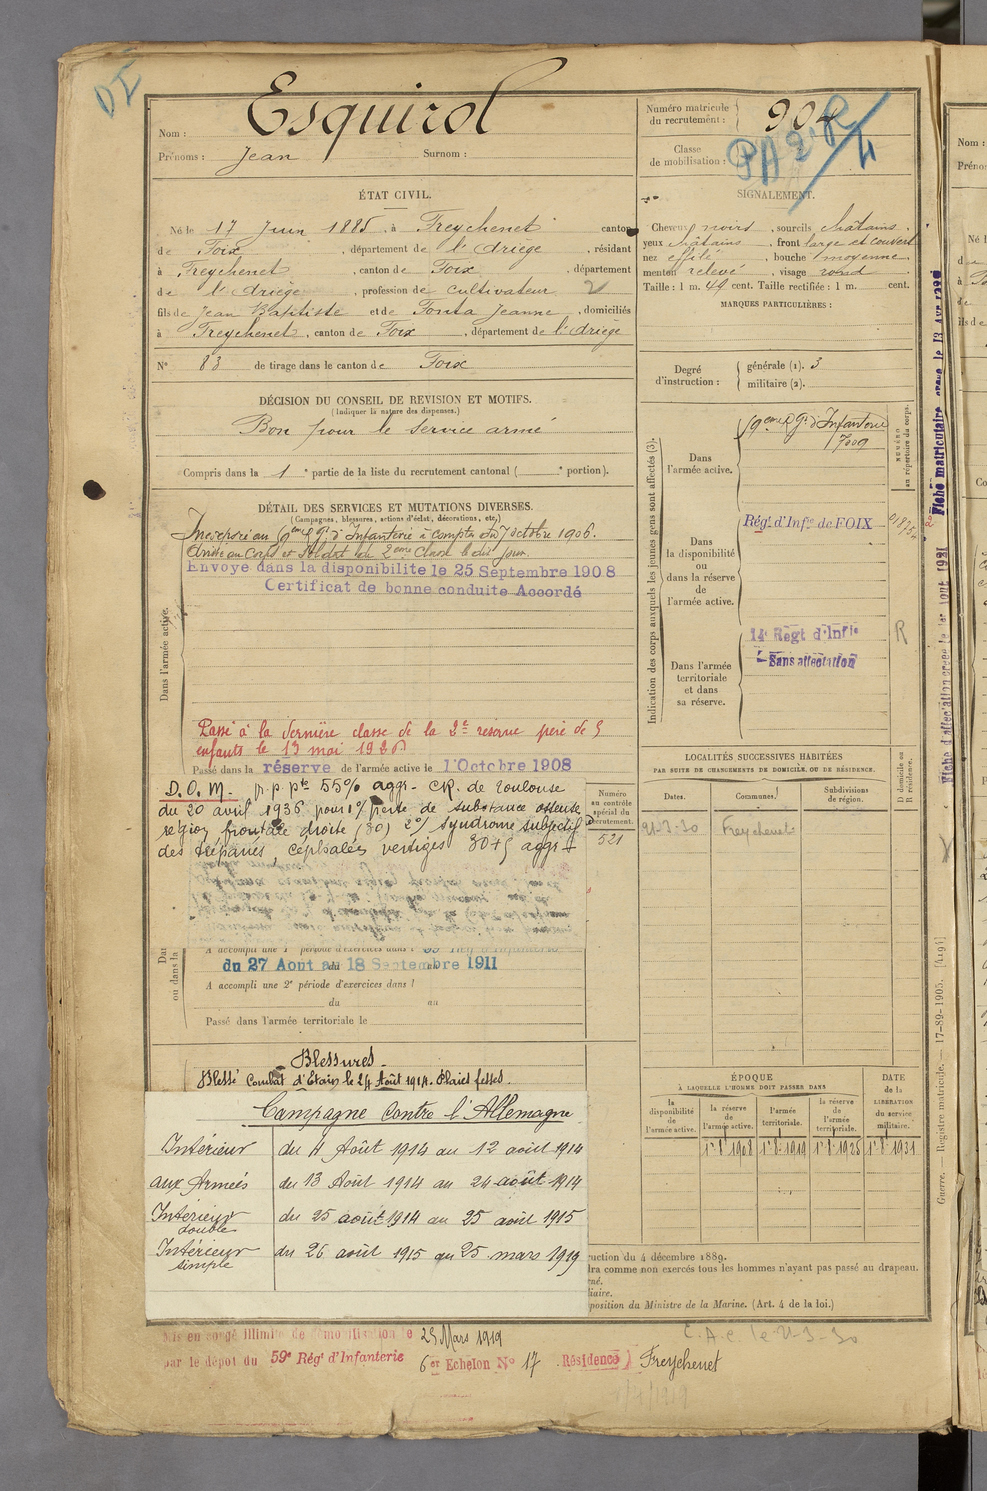 DI
Nom : Esquirol
Prénoms : Jean Surnom :
Numéro matricule
du recrutement : 904
Classe
de mobilisation :
ÉTAT CIVIL.
Né le 17 Juin 1885, à Freychenet canton
de Foix, département de l'Ariège, résidant
à Freychenet, canton de Foix, département
de l'Ariège, profession de cultivateur
fils de Jean Baptiste et de Fonta Jeanne, domiciliés
à Freychenet, canton de Foix, département de l'Ariège
N° 83 de tirage dans le canton de Foix
SIGNALEMENT.
Cheveux noirs, sourcils châtains
yeux châtains, front large et couvert
nez effilé, bouche moyenne
menton relevé, visage rond
Taille : 1 m. 49 cent. Taille rectifiée : 1 m. cent.
MARQUES PARTICULIÈRES :
Degré
d'instruction :
générale (1). 3
militaire (2).
DÉCISION DU CONSEIL DE REVISION ET MOTIFS.
(Indiquer la nature des dispenses.)
Bon pour le service armé
Compris dans la 1e partie de la liste du recrutement cantonal ( e portion).
DÉTAIL DES SERVICES ET MUTATIONS DIVERSES.
(Campagnes, blessures, actions d'éclat, décorations, etc.)
Dans l'armée active.
Incorporé au d'Infanterie à compter du 7 octobre 1906.
Arrivé au Corps et Soldat de 2eme Classe le dit jour.
Envoyé dans la disponibilité le 25 Septembre 1908
Certificat de bonne conduite Accordé
Passé à la dernière classe de la 2e réserve père de 5
enfants le 13 mai 1926
Passé dans la réserve de l'armée active le 1 Octobre 1908
D.O.M. p.p. pte 55% aggr. CR. de Toulouse
du 20 avril 1936 pour 1°/ perte de substance osseuse
région frontale droite (30) 2°/ syndrome subjectif
des trépanés, céphalées vertiges 30+5 aggr +
A accompli une 1e période d'exercices dans l
du 27 Aout au 18 Septembre 1911
A accompli une 2e période d'exercices dans l
du au
Passé dans l'armée territoriale le
Blessures
Blessé Combat d'Etain le 24 Août 1914. Plaies fesses.
Campagne Contre l'Allemagne
Intérieur du 4 Août 1914 au 12 août 1914
aux Armées du 13 Août 1914 au 24 août 1914
Intérieur double du 25 août 1914 au 25 août 1915
Intérieur simple du 26 août 1915 au 25 mars 1919
Mis en congé illimité de démobilisation le 23 Mars 1919
par le dépôt du 59e Régt d'Infanterie 6er Echelon N° 17 Résidence Freychenet
Indication des corps auxquels les jeunes gens sont affectés (3).
Dans
l'armée active.
d'Infanterie
NUMÉRO
au répertoire du corps.
Dans
la disponibilité
ou
dans la réserve
de
l'armée active.
Régt d'Infie de FOIX
Dans l'armée
territoriale
et dans
sa réserve.
14e Regt d'Infie
Sans affectation
R
LOCALITÉS SUCCESSIVES HABITÉES
PAR SUITE DE CHANGEMENTS DE DOMICILE OU DE RÉSIDENCE.
D domicile ou
R résidence.
Numéro
au contrôle
spécial du
recrutement.
521
Dates.
Communes.
Subdivisions
de région.
21-3-30 Freychenet
ÉPOQUE
À LAQUELLE L'HOMME DOIT PASSER DANS
DATE
de la
LIBÉRATION
du service
militaire.
la
disponibilité
de
l'armée active.
la réserve
de
l'armée active.
l'armée
territoriale.
la réserve
de
l'armée
territoriale.
1r 8e 1908
1r 8e 1919
1r 8e 1925
1r 8e 1931
ruction du 4 décembre 1889.
dra comme non exercés tous les hommes n'ayant pas passé au drapeau.
rné.
iaire.
position du Ministre de la Marine. (Art. 4 de la loi.)
C.A.C. le 21-3-30
Guerre. — Registre matricule. — 17-89-1905. [4194]
Nom :